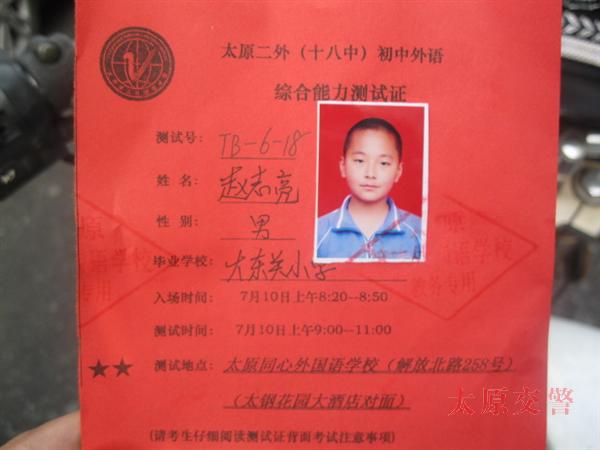 太原二外（十八中）初中外语
综合能力测试证
测试号： TB-6-18
姓 名： 赵志亮
性 别： 男
毕业学校： 大东关小学
入场时间： 7月10日上午8:20--8:50
测试时间： 7月10日上午9:00--11:00
★★ 测试地点： 太原同心外国语学校（解放北路258号）
（太钢花园大酒店对面）
(请考生仔细阅读测试证背面考试注意事项)
原
语学校
专用
原
语学校
教务专用
太原交警